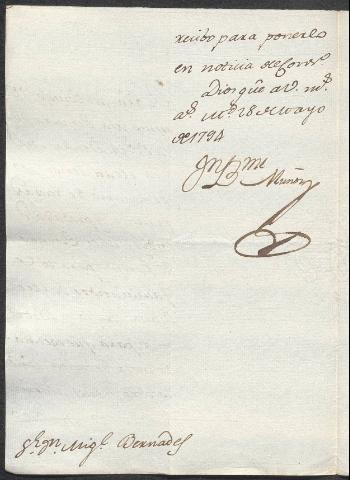 recibo para ponerlo
en noticia del Cons.º
Dios gûe a V. m.s
a.s M.d 28 de Mayo
de 1794
Muñoz
Mig.l Bernades